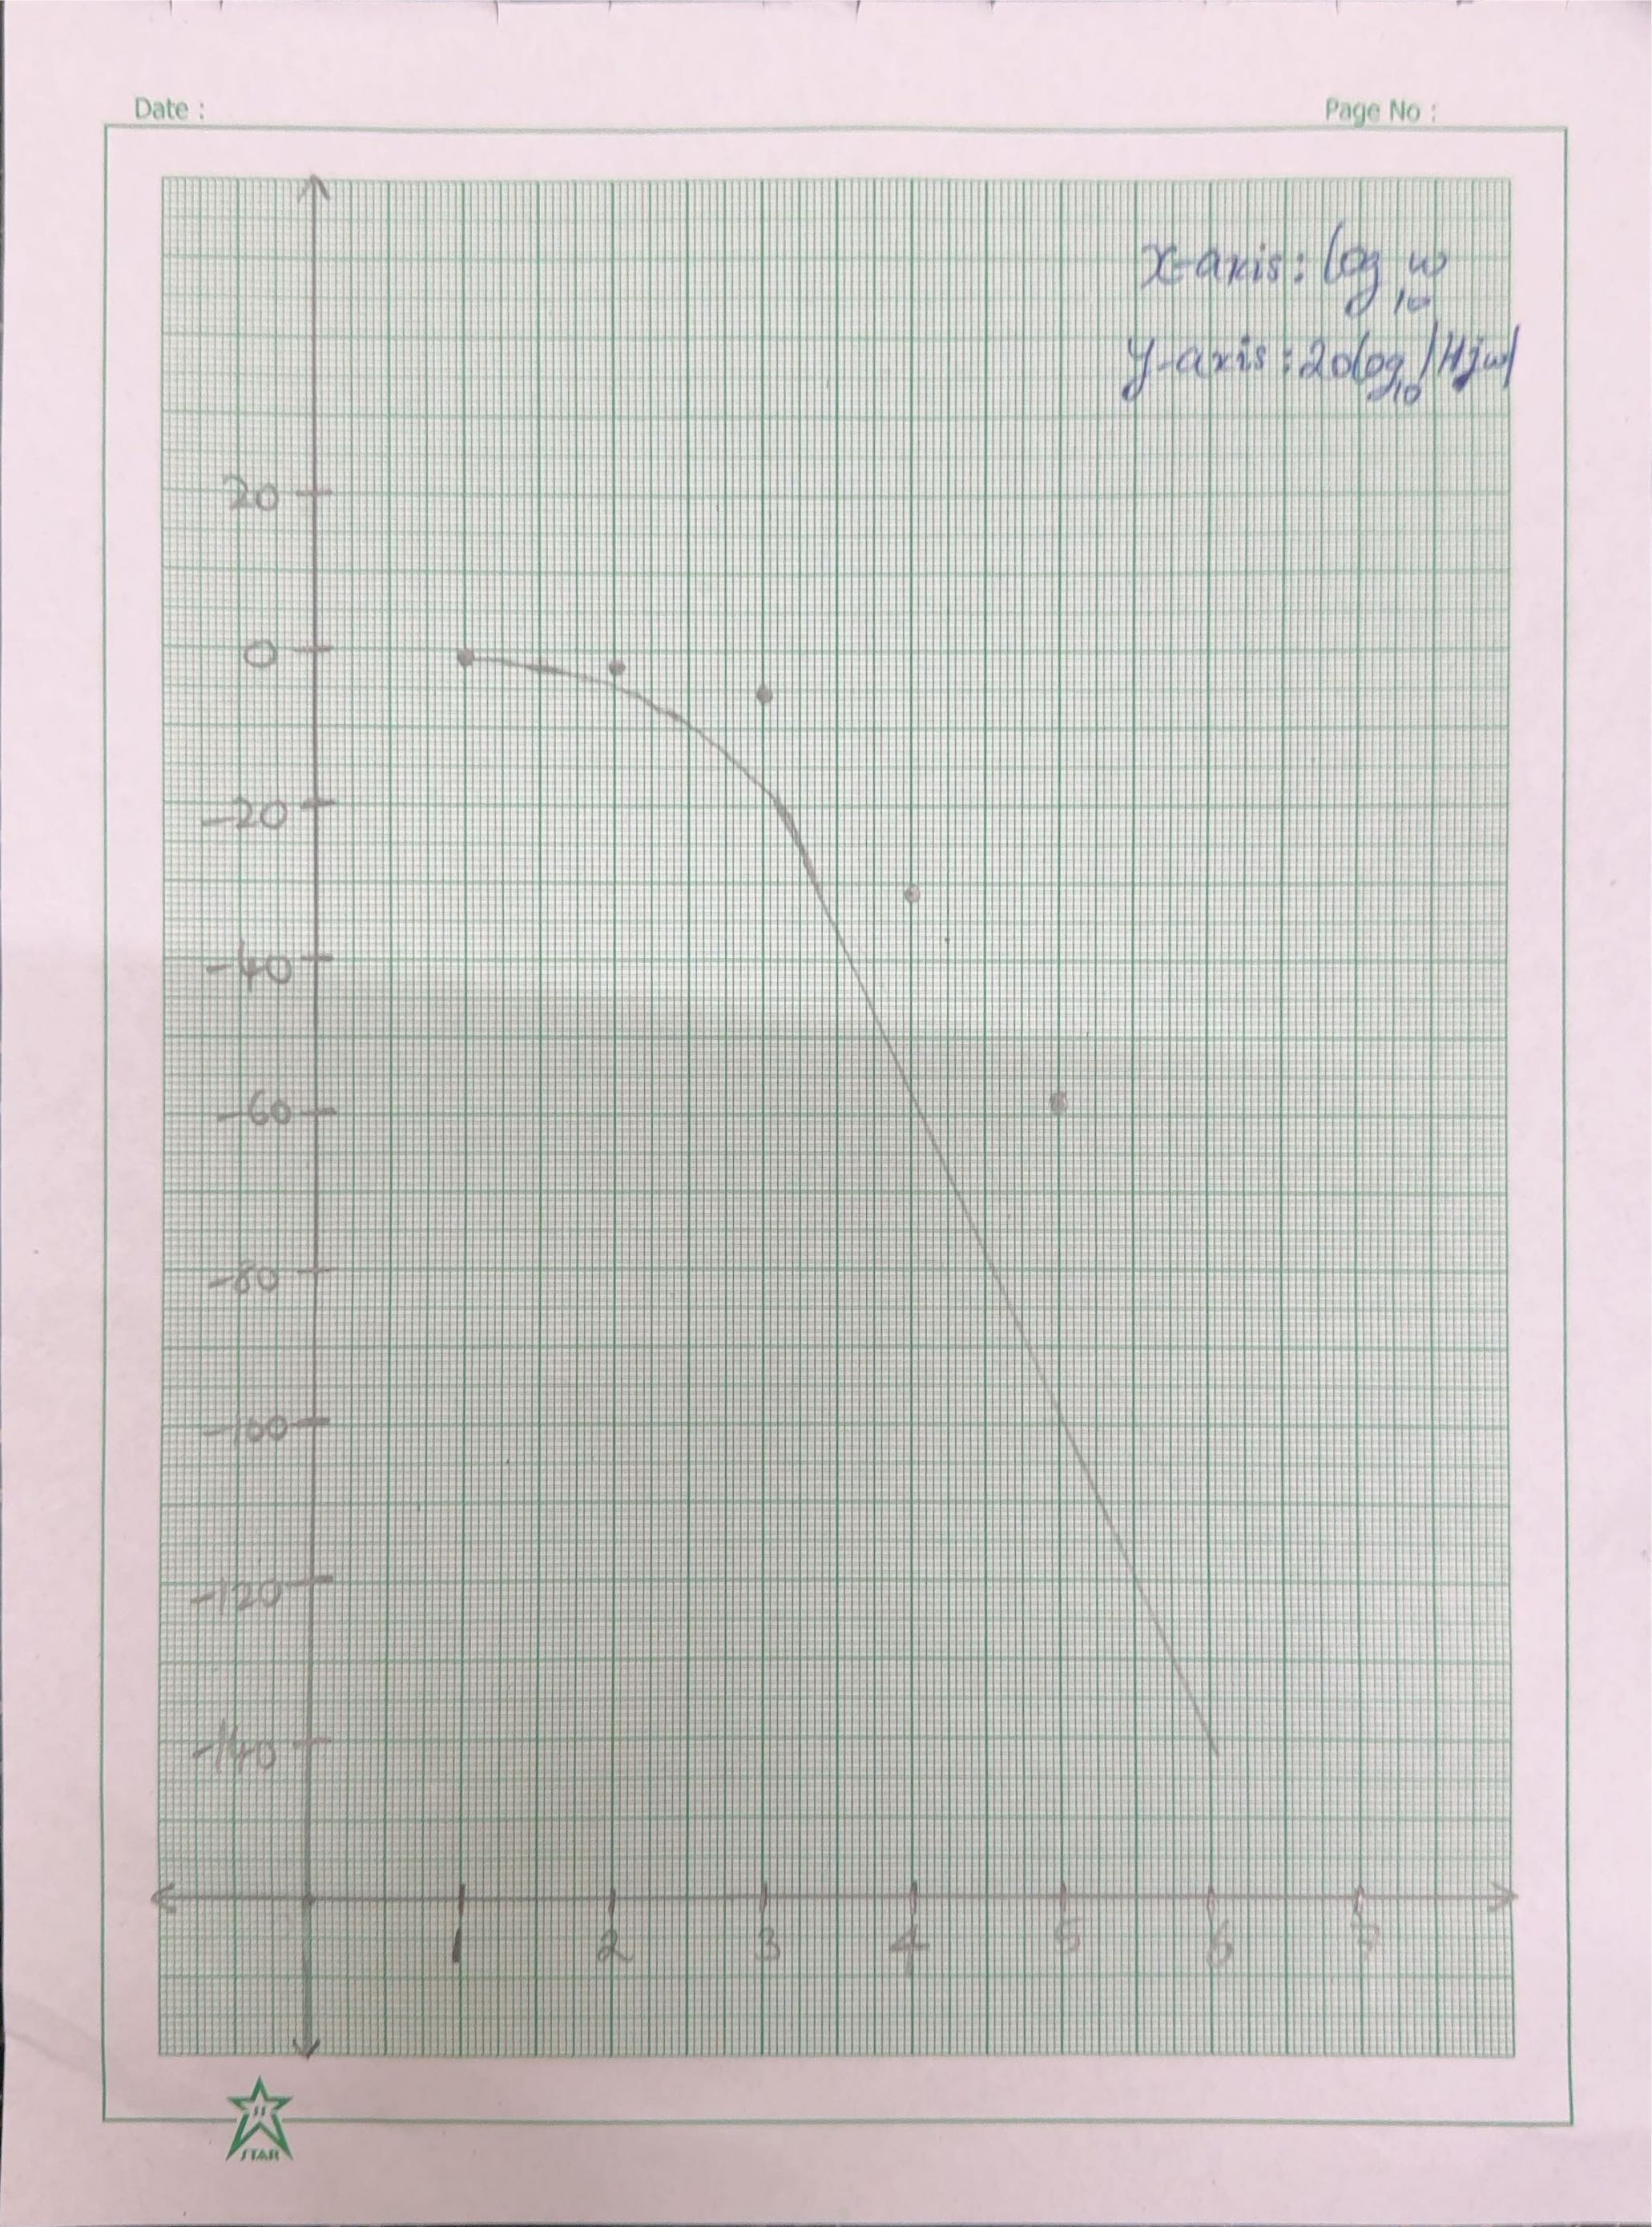 Date :
Page No :
x-axis: log₁₀ w
y-axis: 20log₁₀|Hjw|
20
0
-20
-40
-60
-80
-100
-120
-140
1 2 3 4 5 6 7
STAR